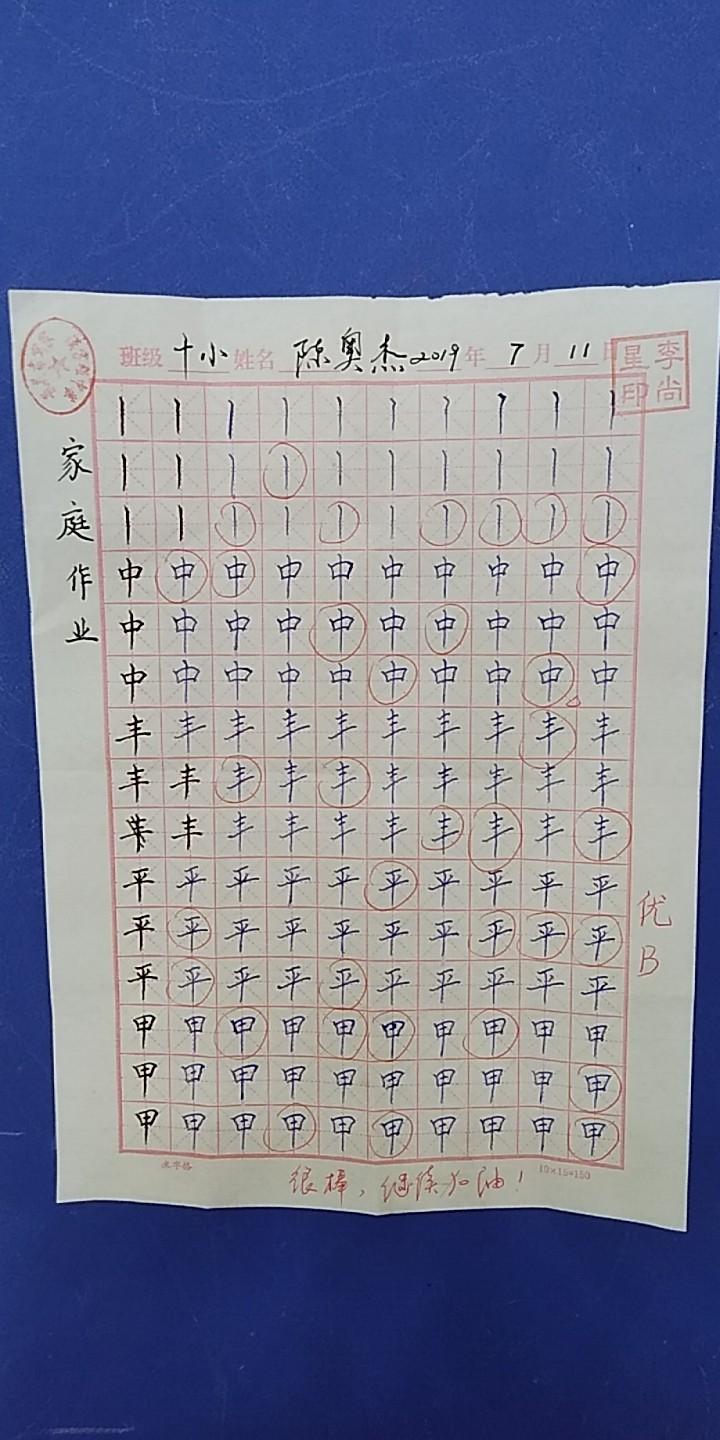 班级 十小 姓名 陈奥杰 2019 年 7 月 11 日
李尚
星印
家庭作业
丨 丨 丨 丨 丨 丨 丨 丨 丨 丨
丨 丨 丨 丨 丨 丨 丨 丨 丨 丨
丨 丨 丨 丨 丨 丨 丨 丨 丨 丨
中 中 中 中 中 中 中 中 中 中
中 中 中 中 中 中 中 中 中 中
中 中 中 中 中 中 中 中 中 中
丰 丰 丰 丰 丰 丰 丰 丰 丰 丰
丰 丰 丰 丰 丰 丰 丰 丰 丰 丰
丰 丰 丰 丰 丰 丰 丰 丰 丰
平 平 平 平 平 平 平 平 平 平
平 平 平 平 平 平 平 平 平 平
平 平 平 平 平 平 平 平 平 平
甲 甲 甲 甲 甲 甲 甲 甲 甲 甲
甲 甲 甲 甲 甲 甲 甲 甲 甲 甲
甲 甲 甲 甲 甲 甲 甲 甲 甲 甲
优
B
10×15=150
很棒，继续加油！